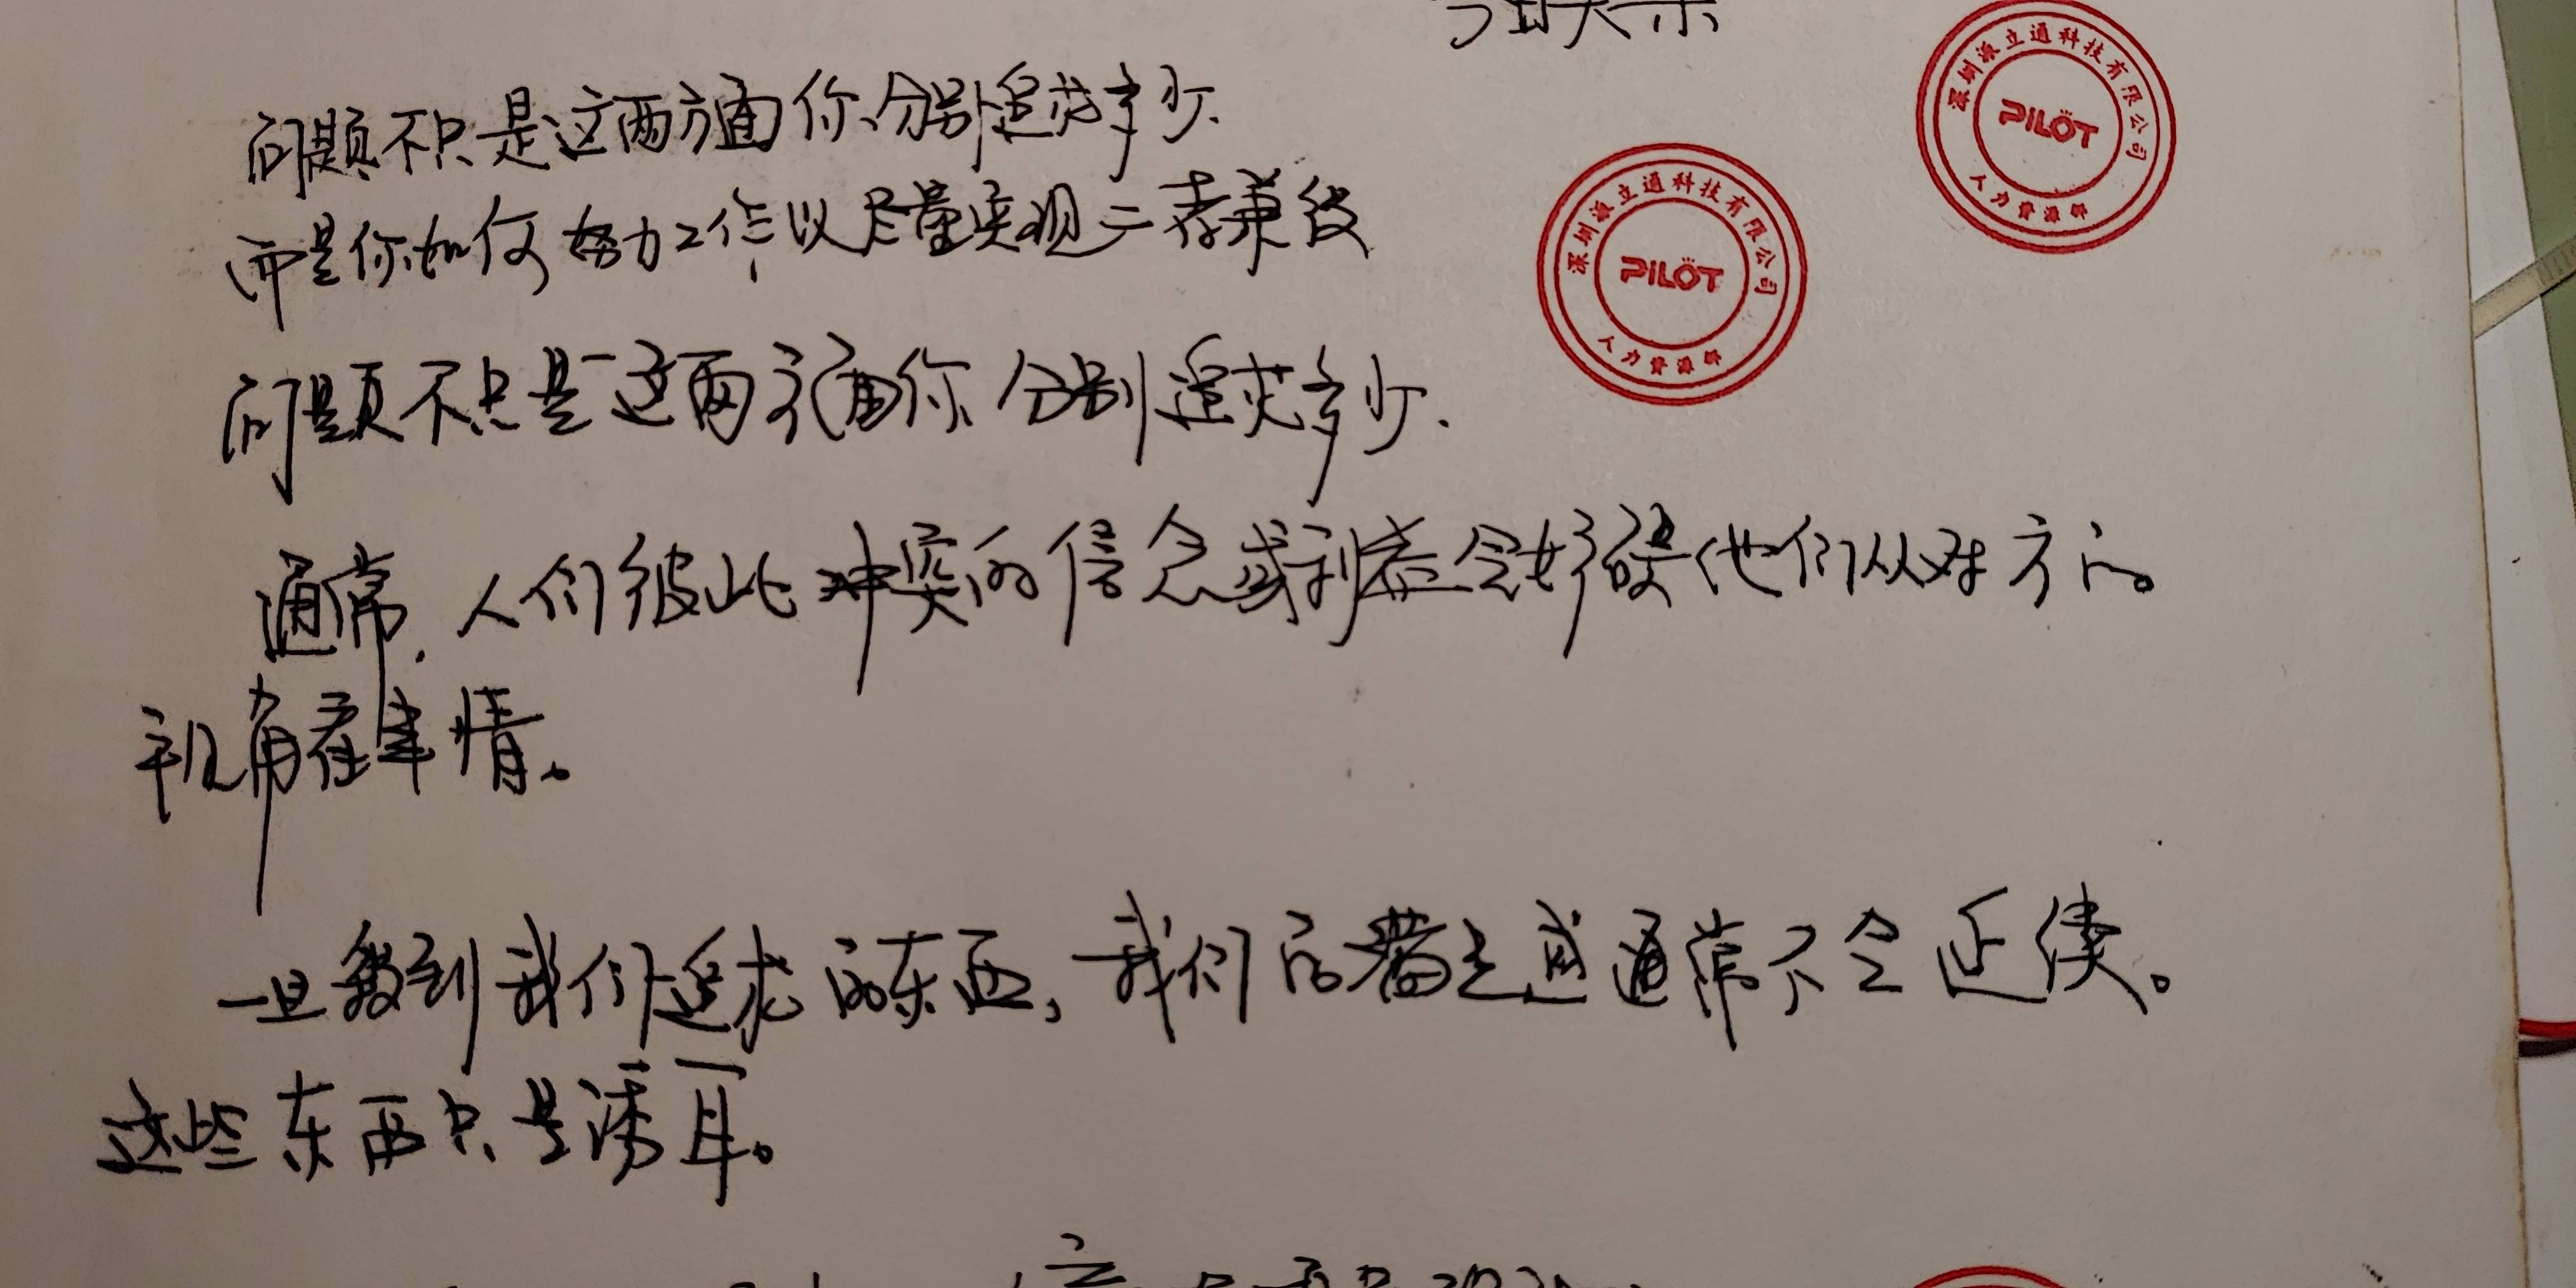 深圳派立通科技有限公司
PILOT
人力资源部
问题不只是这两方面你分别追求多少.
而是你如何努力工作以尽量实现二者兼得
深圳派立通科技有限公司
PILOT
人力资源部
问题不只是这两方面你分别追求多少.
通常,人们彼此冲突的信念或利益会妨碍他们从对方的
视角看事情。
一旦得到我们追求的东西,我们的满足感通常不会延续。
这些东西只是诱耳。